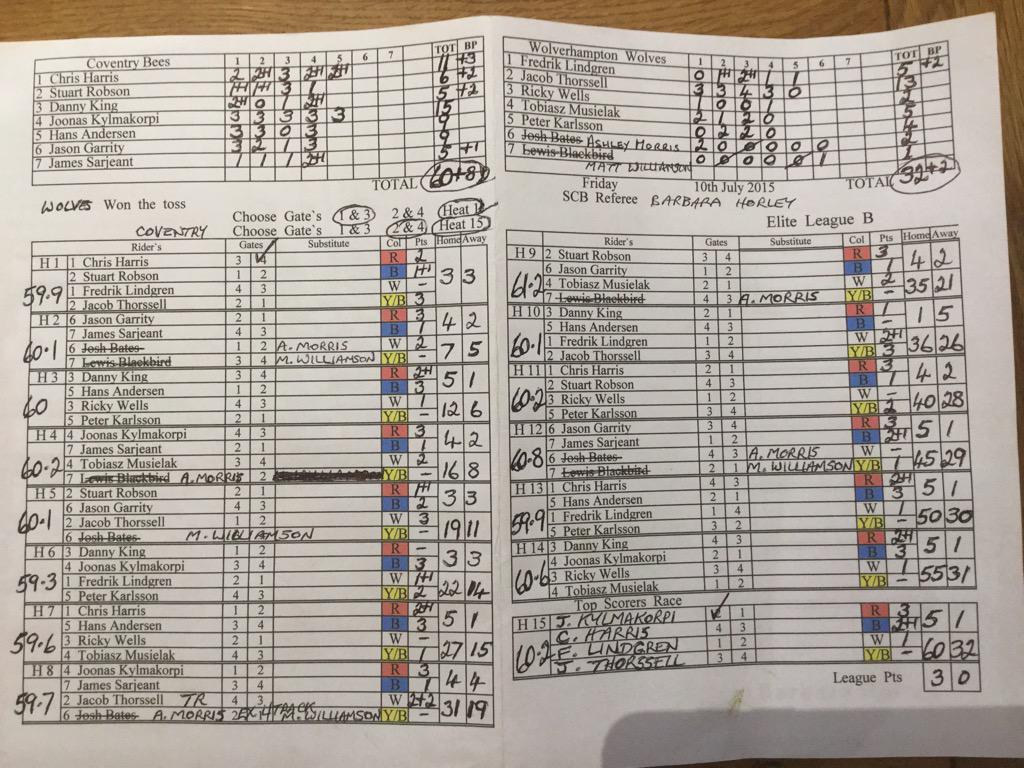 Coventry Bees 1 2 3 4 5 6 7 TOT BP
1 Chris Harris 2 2+1 3 2+1 2+1 11 +3
2 Stuart Robson 1+1 1+1 3 1 6 +2
3 Danny King 2+1 0 1 2+1 5 +2
4 Joonas Kylmakorpi 3 3 3 3 3 15
5 Hans Andersen 3 3 0 3 9
6 Jason Garrity 3 2 1 3 9
7 James Sarjeant 1 1 1 2+1 5 +1
TOTAL 60+8
WOLVES Won the toss
Choose Gate's 1 & 3 2 & 4 Heat 1
COVENTRY Choose Gate's 1 & 3 2 & 4 Heat 15
Rider's Gates Substitute Col Pts Home Away
H 1 1 Chris Harris 3 R 2
2 Stuart Robson 1 2 B 1+1 3 3
59.9 1 Fredrik Lindgren 4 3 W -
2 Jacob Thorssell 2 1 Y/B 3
H 2 6 Jason Garrity 2 1 R 3
7 James Sarjeant 4 3 B 1 4 2
60.1 6 Josh Bates 1 2 A. MORRIS W 2 7 5
7 Lewis Blackbird 3 4 M. WILLIAMSON Y/B -
H 3 3 Danny King 3 4 R 2+1
5 Hans Andersen 1 2 B 3 5 1
60 3 Ricky Wells 4 3 W 1 12 6
5 Peter Karlsson 2 1 Y/B -
H 4 4 Joonas Kylmakorpi 4 3 R 3
7 James Sarjeant 2 1 B 1 4 2
60.2 4 Tobiasz Musielak 3 4 W 2 16 8
7 Lewis Blackbird A. MORRIS 2 Y/B -
H 5 2 Stuart Robson 2 1 R 1+1
6 Jason Garrity 4 3 B 2 3 3
60.1 2 Jacob Thorssell 1 2 W 3 19 11
6 Josh Bates M. WILLIAMSON Y/B -
H 6 3 Danny King 1 2 R -
4 Joonas Kylmakorpi 3 4 B 3 3 3
59.3 1 Fredrik Lindgren 2 1 W 1+1 22 14
5 Peter Karlsson 4 3 Y/B 2
H 7 1 Chris Harris 1 2 R 2+1
5 Hans Andersen 3 4 B 3 5 1
59.6 3 Ricky Wells 2 1 W - 27 15
4 Tobiasz Musielak 4 3 Y/B 1
H 8 4 Joonas Kylmakorpi 1 2 R 3
7 James Sarjeant 3 4 B 1 4 4
59.7 2 Jacob Thorssell TR 4 3 W 2+2 31 19
6 Josh Bates A. MORRIS EX TRACK M. WILLIAMSON Y/B -
Wolverhampton Wolves 1 2 3 4 5 6 7 TOT BP
1 Fredrik Lindgren 0 1+1 2+1 1 1 5 +2
2 Jacob Thorssell 3 3 4 3 0 13
3 Ricky Wells 1 0 0 1 2
4 Tobiasz Musielak 2 1 2 0 5
5 Peter Karlsson 0 2 2 0 4
6 Josh Bates ASHLEY MORRIS 2 0 0 0 0 0 2
7 Lewis Blackbird 0 0 0 0 0 1 1
MATT WILLIAMSON
TOTAL 32+2
Friday 10th July 2015
SCB Referee BARBARA HORLEY
Elite League B
Rider's Gates Substitute Col Pts Home Away
H 9 2 Stuart Robson 3 4 R 3
6 Jason Garrity 1 2 B 1 4 2
61.2 4 Tobiasz Musielak 2 1 W 2 35 21
7 Lewis Blackbird 4 3 A. MORRIS Y/B -
H 10 3 Danny King 2 1 R 1
5 Hans Andersen 4 3 B - 1 5
60.1 1 Fredrik Lindgren 1 2 W 2+1 36 26
2 Jacob Thorssell 3 4 Y/B 3
H 11 1 Chris Harris 2 1 R 3
2 Stuart Robson 4 3 B 1 4 2
60.2 3 Ricky Wells 1 2 W - 40 28
5 Peter Karlsson 3 4 Y/B 2
H 12 6 Jason Garrity 3 4 R 3
7 James Sarjeant 1 2 B 2+1 5 1
60.8 6 Josh Bates 4 3 A. MORRIS W - 45 29
7 Lewis Blackbird 2 1 M. WILLIAMSON Y/B 1
H 13 1 Chris Harris 4 3 R 2+1
5 Hans Andersen 2 1 B 3 5 1
59.9 1 Fredrik Lindgren 1 4 W 1 50 30
5 Peter Karlsson 3 2 Y/B -
H 14 3 Danny King 4 3 R 2+1
4 Joonas Kylmakorpi 2 1 B 3 5 1
60.6 3 Ricky Wells 3 4 W 1 55 31
4 Tobiasz Musielak 1 2 Y/B -
Top Scorers Race
H 15 J. KYLMAKORPI 1 R 3
C. HARRIS 4 3 B 2+1 5 1
60.2 F. LINDGREN 1 2 W 1 60 32
J. THORSSELL 3 4 Y/B -
League Pts 3 0